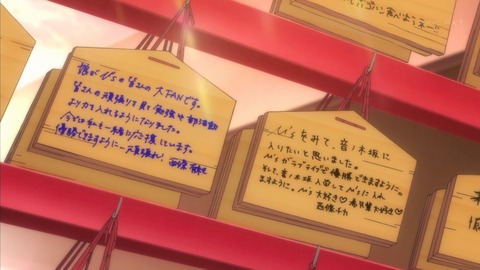 娘がμ'sの皆さんの大FANです。
皆さんの頑張りを見て勉強や部活動
より力を入れるようになりました。
今では私も一緒に応援しています。
優勝できますように 頑張れ! 西條
μ'sをみて、音ノ木坂に
入りたいと思いました。
μ'sがラブライブで優勝できますように。
そして、音ノ木坂入学してμ'sに入れ
ますように。μ's大好き♡希凛大好き♡
西條チカ
ゴハン食べようネー!!